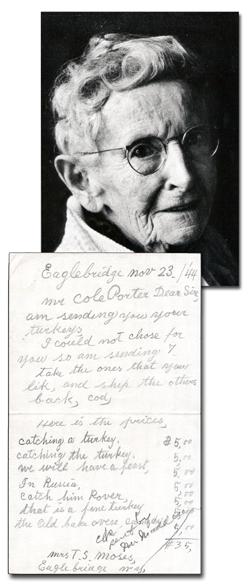 Eaglebridge Nov 23./44
mr Cole Porter Dear Sir,
am sending you your
turkeys,
I could not chose for
you so am sending 7
take the ones that you
lik, and ship the others
back, cod,
Here is the prices,
catching a turkey. $5,00
catching the turkey. 5,00
we will have a feast, 5,00
In Russia, 5,00
catch him Rover, 5,00
that is a fine turkey 5,00
the Old bake ovens, 5,00
$35,
mrs T. S. Moses,
Eaglebridge